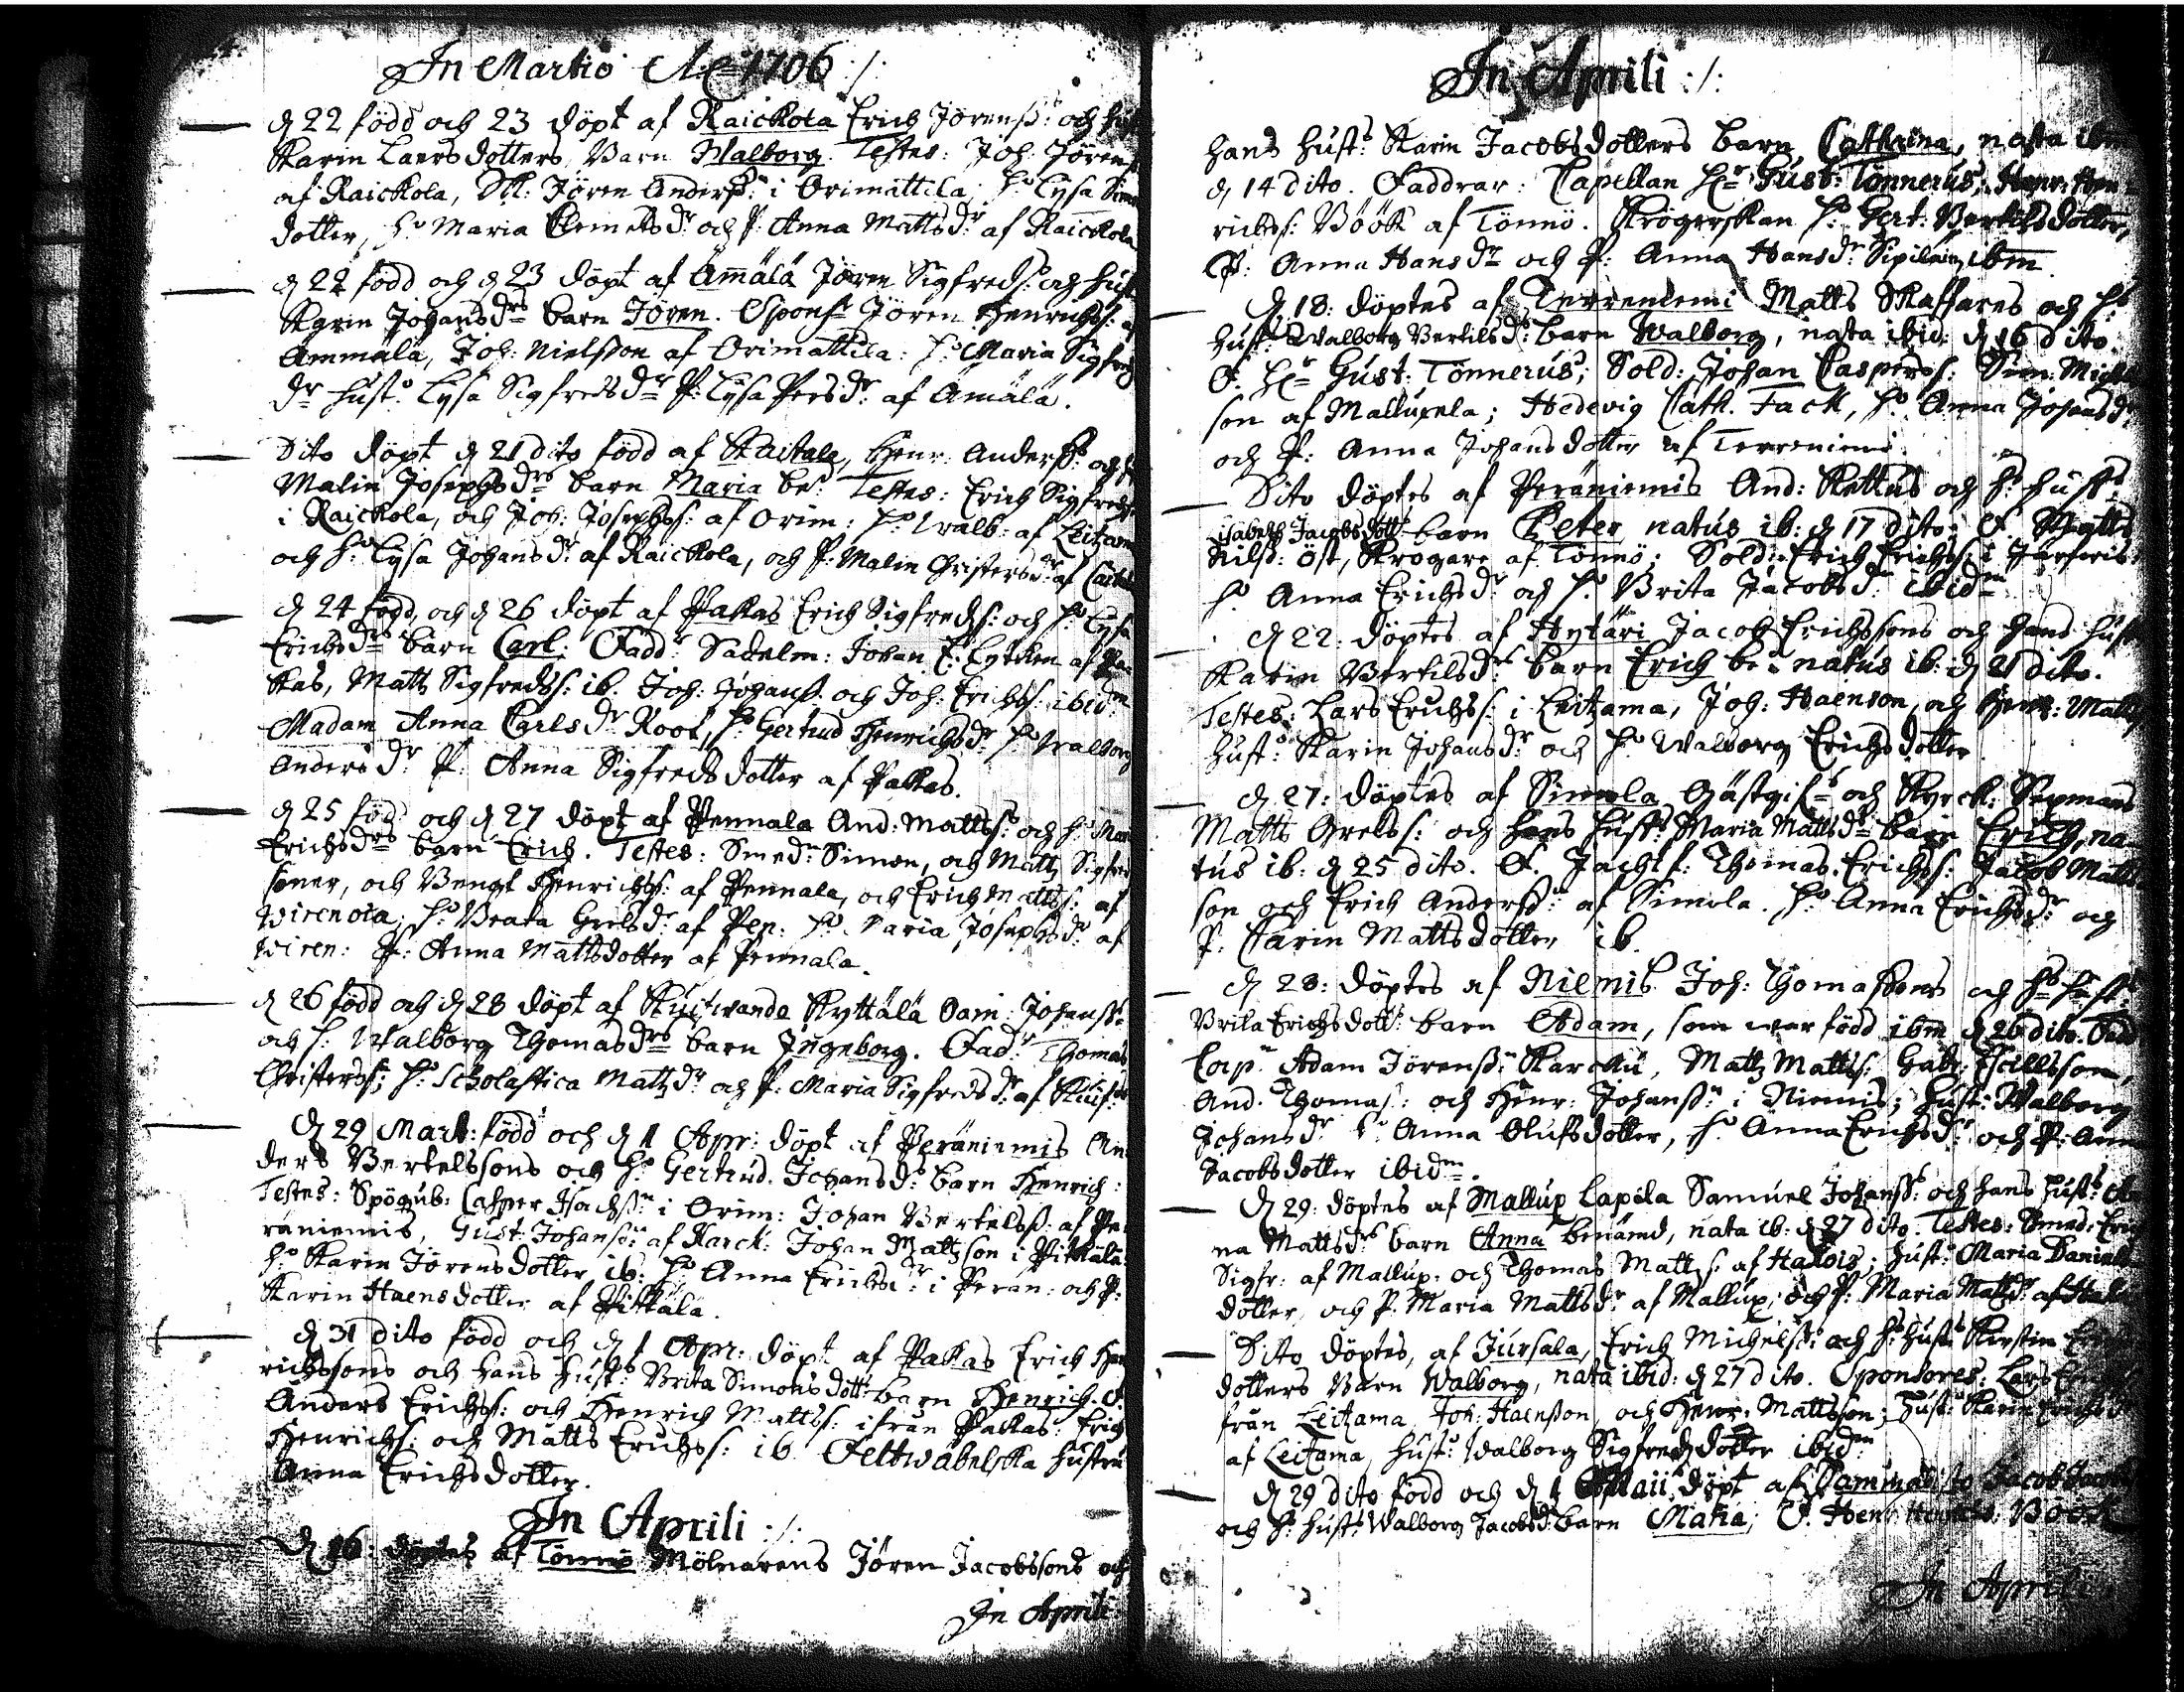 In Martio A:o 1706 :/:
d 22 född och 23 döpt af Raickola Erich Jörenss: och
Karin Larsdotters Barn Walborg. Testes: Joh: Jörens
af Raickola, Sk: Jören Anderss: i Orimattila; h:o Lysa Sim
dotter, h:o Maria Clemetsd:r och P: Anna Mattsd:r af Raickola
d 22 född och d 23 döpt af Ämälä Jören Sigfreds: och hust
Karin Johansd:rs barn Jören. Spons: Jören Henrichss: af
Ammälä, Joh: Nielsson af Orimattila: h:o Maria Sigfreds
d:r hust:o Lysa Sigfredsd:r P: Lysa Persd:r af Ämälä.
Dito döpt d 21 dito född af Kaitala, Henr: Anderss: och h
Malin Josephsd:rs barn Maria be:d Testes: Erich Sigfreds
i Raickola, och Joh: Josephss: af Orim: h:o Walb: af Leitzam
och h:o Lysa Johansd:r af Raickola, och P: Malin Christersd:r af
d 24 född, och d 26 döpt af Pakas Erich Sigfreds: och h:o Lysa
Erichsd:rs barn Carl: Fadd:r Sadelm: Johan E: af Pa
kas, Matts Sigfredss: ib. Joh: Johanss: och Joh: Erichss: ibid:m
Madam Anna Carlsd:r Roos, h:o Gertrud Henrichsd:r h:o Walborg
Andersd:r P: Anna Sigfredsdotter af Pakas.
d 25 född och d 27 döpt af Pennala And: Mattss: och h:o Mar
Erichsd:rs barn Erich. Testes: Smed:n Simon, och Matts Sigfred
söner, och Bengt Henrichss: af Pennala, och Erich Mattss: af
Wirenoia; h:o Beata Grelsd:r af Pen: h:o Maria Josephsd:r af
Wiren: P: Anna Mattsdotter af Pennala.
d 26 född och d 28 döpt af Kuifwande Kyttälä Johanss:
och h: Walborg Thomasd:rs barn Jngeborg. Fad:r Thomas
Christerss; h:o Scholastica Mattsd:r och P: Maria Sigfredsd:r af Kuif:
d 29 Mart: född och d 1 Apr: döpt af Peräniemis An
ders Bertelssons och h:o Gertrud Johansd:rs barn Henrich:
Testes: Spögub: Casper Isachss:n i Orim: Johan Bertelss: af Pe
räniemis, Gust: Johanss:n af Karck: Johan Mattsson i Pitkälä
h:o Karin Jörensdotter ib: h:o Anna Erichsd:r i Perän: och P:
Karin Haensdotter af Pitkälä.
d 31 dito född och d 1 Apr: döpt af Pakas Erich Hen
richssons och hans hust:s Brita Simonsdott:s barn Henrich. F.
Anders Erichss: och Henrich Mattss: ifrån Pakas: Erich
Henrichss: och Matts Erichss: ib. Feltwäbelska hustru
Anna Erichsdotter.
In Aprili :/:
d 16: döptes af Tönnö Mölnarens Jören Jacobssons och
In Aprili
In Aprili :/:
hans hust:s Karin Jacobsdotters barn Cathrina, nata ibm
d 14 dito. Faddrar: Capellan H:r Gust: Tönnerus, Henr: Hen
richss: Böök af Tönnö. Krögerskan h:o Gert: Bertilsdotter,
P: Anna Hansd:r och P: Anna Hansd:r Sipiläin ibm
d 18: döptes af Terreniemi Matts Skaffares och h:s
hust:s Walborg Bertilsd:s barn Walborg, nata ibid: d 16 dito.
F. H:r Gust: Tönnerus; Sold: Johan Caspers: Sim: Michel
son af Mallupela; Hedevig Cath. Fack, h:o Anna Johansd:r
och P: Anna Johansdotter af Terreniemi.
Dito döptes af Peräniemis And: Kettus och h:s hust:s
Isabeth Jacobsdott:s barn Peter natus ib: d 17 dito; F. Matts
Nilss: Öst, Krögare af Tönnö; Sold: Erich Erichss: i Järferis
h:o Anna Erichsd:r och h:o Brita Jacobsd:r ibid:m
d 22: döptes af Hytäri Jacob Erichssons och hans hust
Karin Bertilsd:rs barn Erich be:d natus ib: d 21 dito.
Testes: Lars Erichss: i Leitzama, Joh: Haenson, och Henr: Matts
hust:o Karin Johansd:r och h:o Walborg Erichsdotter
d 27: döptes af Simola Gästgif:s och Kyrck: Sexmans
Matts Grelss: och hans hust:s Maria Mattsd:rs barn Erich, na-
tus ib: d 25 dito. F. Jachtf: Thomas Erichss: Jacob Matts
son och Erich Anderss:n af Simola. h:o Anna Erichsd:r och
P: Carin Mattsdotter ib.
d 28: döptes af Niemis Joh: Thomassons och h:s hust:s
Brita Erichsdott:s barn Adam, som war född ibm d 26 dito. Fadd
Cap:n Adam Jörenss:n Karckü, Matts Mattss: Gabr: Eskillsson,
And. Thomas: och Henr: Johanss:n i Niemis; hust: Walborg
Johansd:r h:o Anna Olufsdotter, h:o Anna Erichsd:r och P: Anna
Jacobsdotter ibid:m.
d 29: döptes af Mallup Lapila Samuel Johanss: och hans hust:s An
na Mattsd:rs barn Anna benämd, nata ib: d 27 dito. Testes: Smed: Erich
Sigfr: af Mallup. och Thomas Mattss: af Hatois; hust:o Maria Daniels
dotter, och P. Maria Mattsd:r af Mallup; och P: Maria Mattsd:r af
Dito döptes, af Jürsala, Erich Michelss:n och h:s hust:s Kirstin
dotters Barn Walborg, nata ibid: d 27 dito. Sponsores: Lars
från Leitzama, Joh: Haensson, och Henr: Mattsson; hust:o Karin Erichsd:r
af Leitzama, hust:o Walborg Sigfredsdotter ibid:m
d 29 dito född och d 1 Maii döpt af Jacob
och h:s hust:s Walborg Jacobsd:s barn Maria; F. Henr Böök
In Aprili